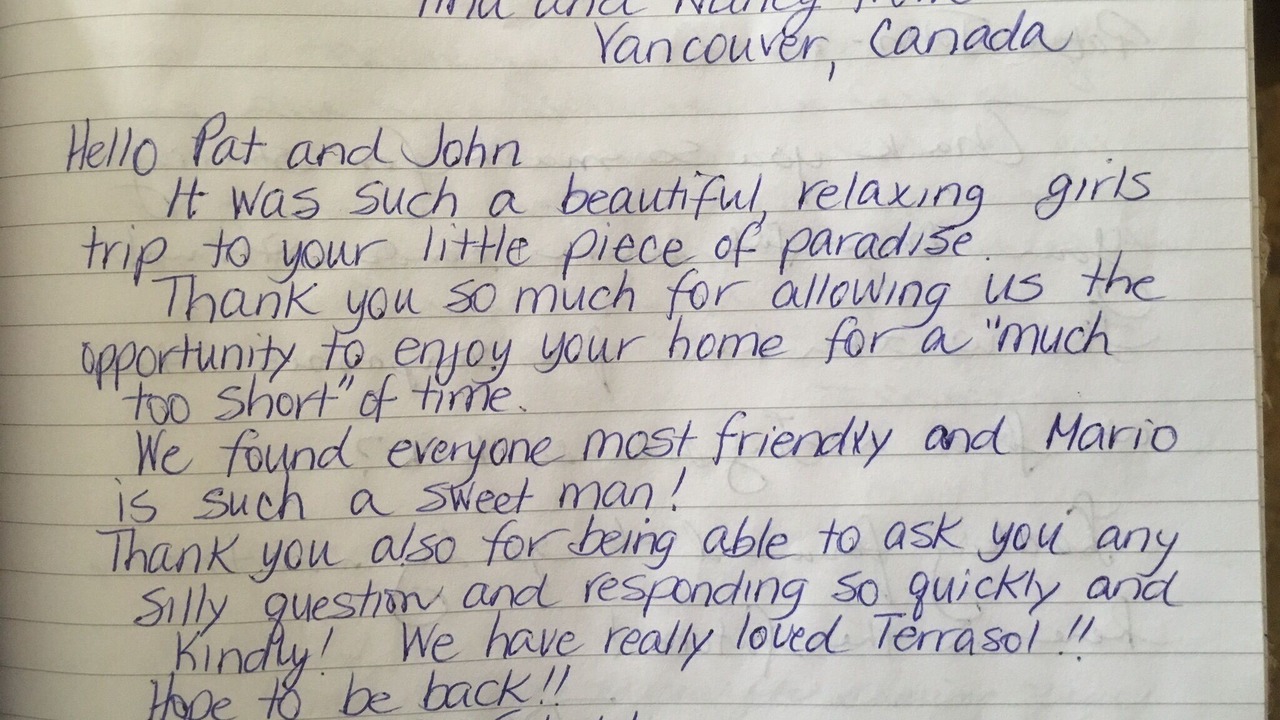 and Nancy from
Vancouver, Canada
Hello Pat and John
It was such a beautiful, relaxing girls
trip to your little piece of paradise.
Thank you so much for allowing us the
opportunity to enjoy your home for a "much
too short" of time.
We found everyone most friendly and Mario
is such a sweet man!
Thank you also for being able to ask you any
silly question and responding so quickly and
Kindly! We have really loved Terrasol!!
Hope to be back!!